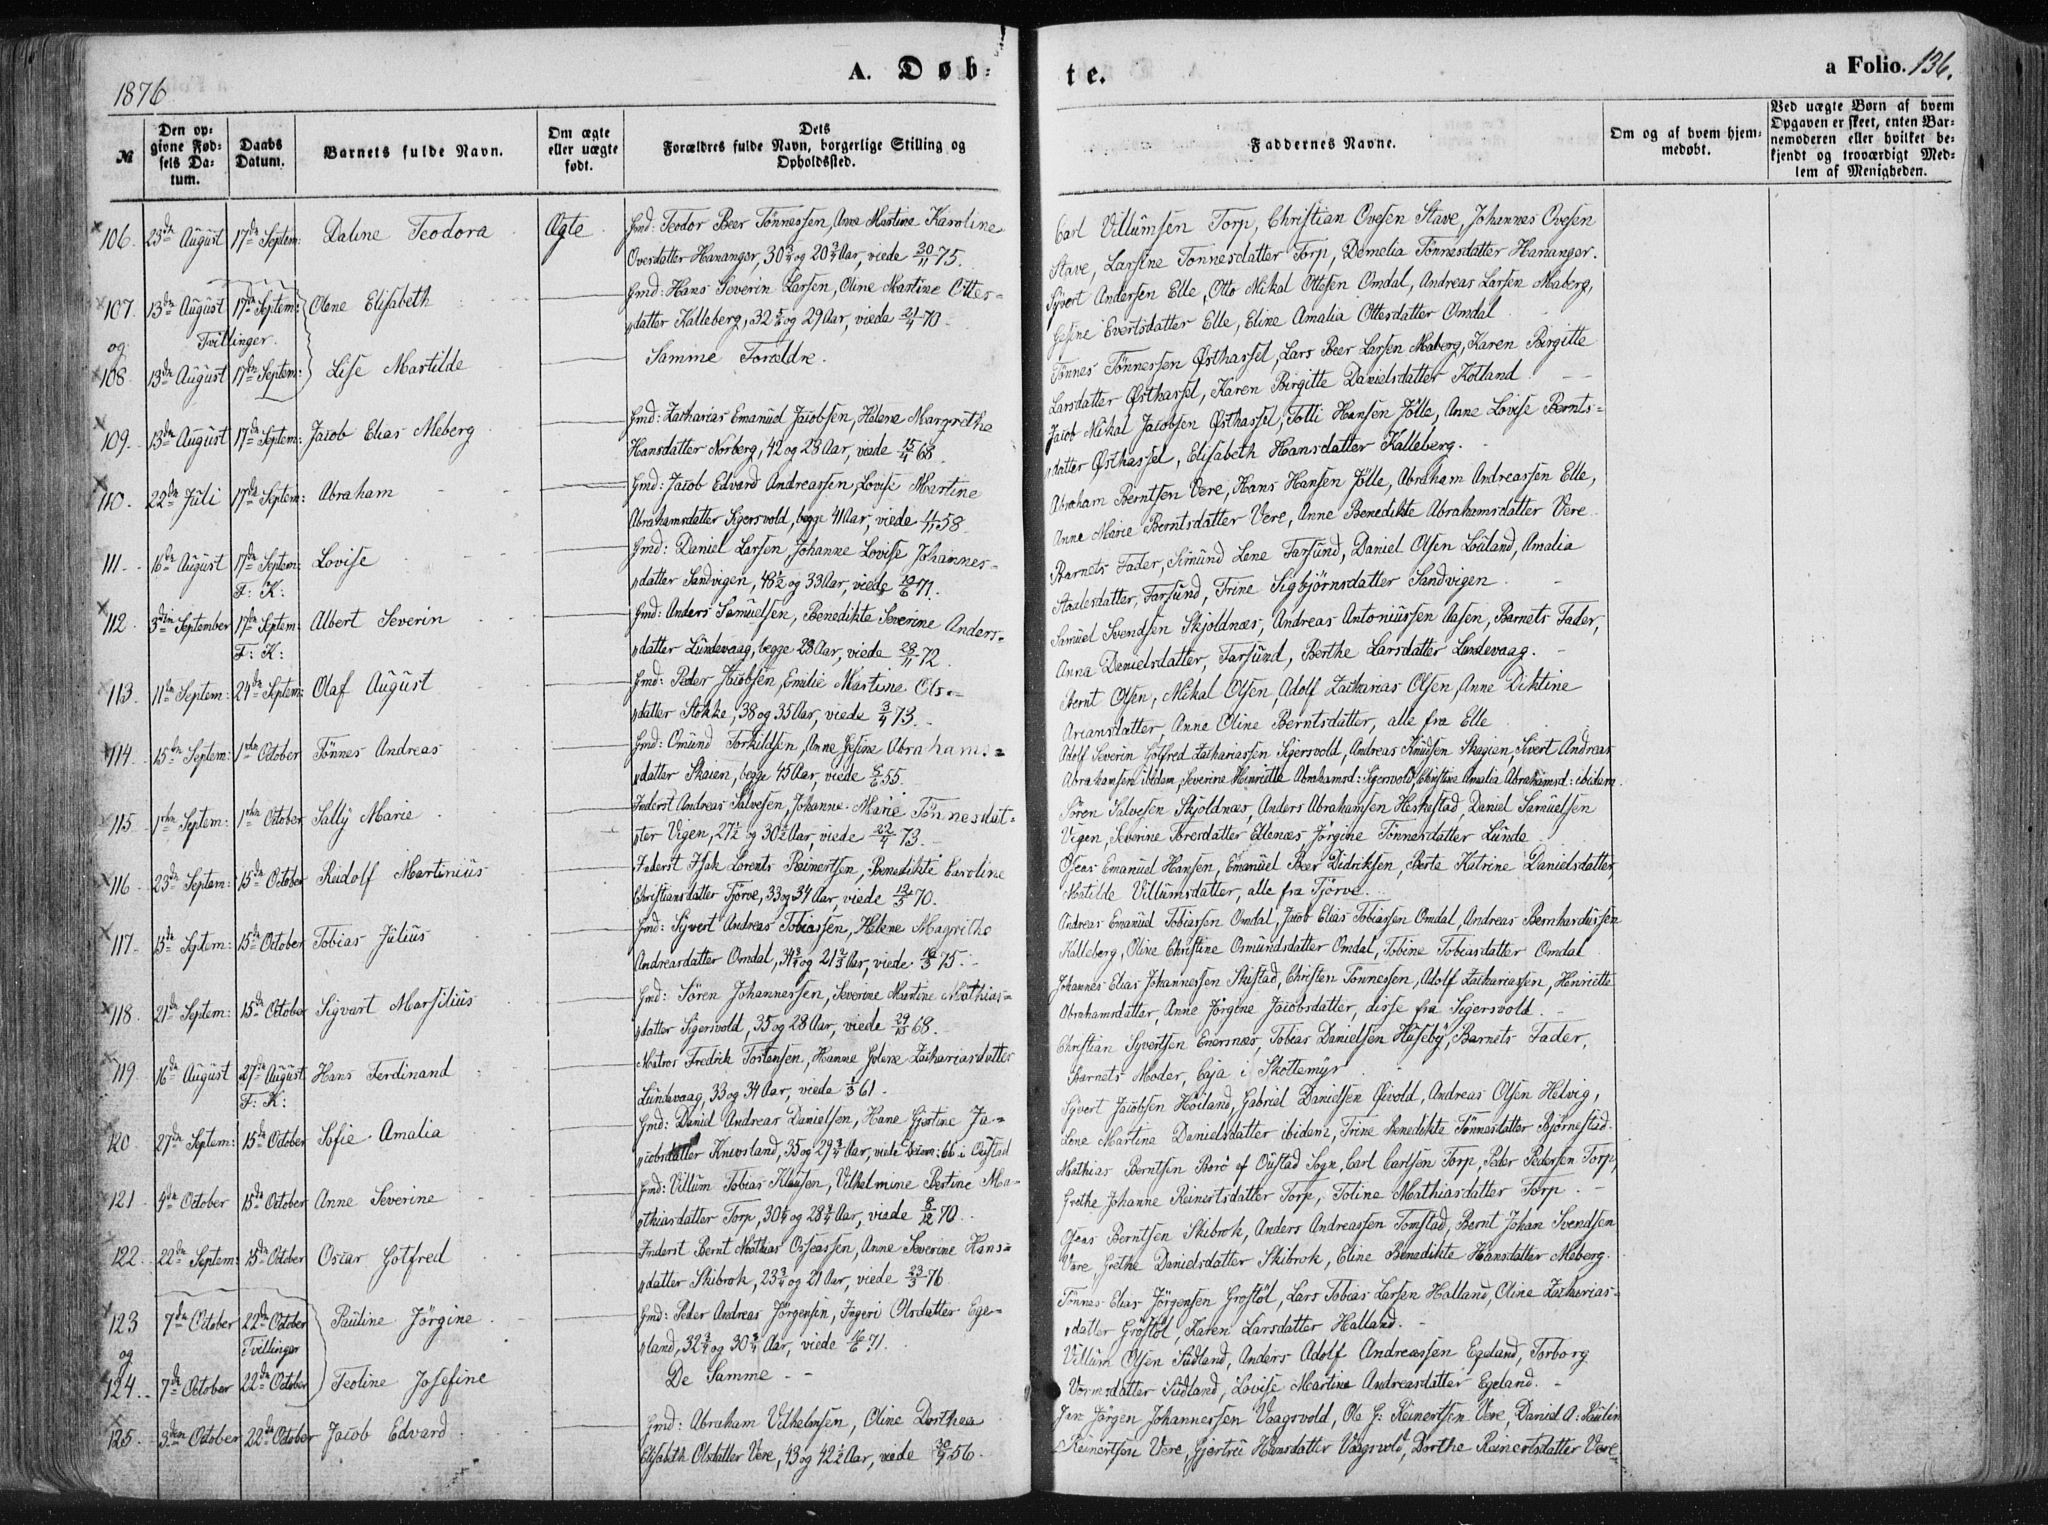 1876
A. Døb-
te.
a Folio. 136.
№
Den op-
givne Fød-
sels Da-
tum.
Daabs
Datum.
Barnets fulde Navn.
Om ægte
eller uægte
født.
Dets
Forældres fulde Navn, borgerlige Stilling og
Opholdssted.
Faddernes Navne.
Om og af hvem hjem-
medøbt.
Ved uægte Børn af hvem
Opgaven er skeet, enten Bar-
nemoderen eller hvilket be-
kjendt og troværdigt Med-
lem af Menigheden.
106. 25de August 17de Septem: Daline Teodora Ægte Gmd: Teodor Beer Tönnessen, Anne Martine Karoline
Ovesdatter Hananger, 30 3/4 og 20 3/4 Aar, viede 20/11 75.
Carl Villumsen Torp, Christian Ovesen Stave, Johannes Ovesen
Stave, Larsine Tonnesdatter Torp, Demelia Tönnesdatter Hananger.
107. 13de August 17de Septem: Olene Elisabeth Gmd: Hans Severin Larsen, Oline Martine Ottes-
datter Kalleberg, 32 og 29 Aar, viede 21/4 70.
og Tvillinger.
Syvert Andersen Elle, Otto Mikal Ottesen Omdal, Andreas Larsen Maberg,
Gesine Evertsdatter Elle, Eline Amalia Ottesdatter Omdal
108. 13de August 17de Septem: Lise Martilde Samme Forældre.
Tönnes Tönnesen Østhassel, Lars Beer Larsen Maberg, Karen Birgitte
Larsdatter Østhassel, Karen Birgitte Danielsdatter Kotland
109. 13de August 17de Septem: Jacob Elias Meberg Gmd: Zacharias Emanuel Jacobsen, Helene Margrethe
Hansdatter Norberg, 42 og 28 Aar, viede 15/4 68.
Jacob Mikal Jacobsen Østhassel, Tolli Hansen Jölle, Anne Lovise Bernts-
datter Østhassel, Elisabeth Hansdatter Kalleberg.
110. 22de Juli 17de Septem: Abraham Gmd: Jacob Edvard Andreassen, Lovise Martine
Abrahamsdatter Sigersvold, begge 41 Aar, viede 4/11 58
Abraham Berntsen Vere, Hans Hansen Jölle, Abraham Andreassen Elle,
Anne Marie Berntsdatter Vere, Anne Benedikte Abrahamsdatter Vere
111. 16de August 17de Septem: Lovise Gmd: Daniel Larsen, Johanne Lovise Johannes-
F: K: datter Sandvigen, 48 1/2 og 33 Aar, viede 19/6 71.
Barnets Fader, Simund Lene Farsund, Daniel Olsen Loiland, Amalia
Staalesdatter, Farsund, Trine Sigbjörnsdatter Sandvigen
112. 3die September 17de Septem: Albert Severin Gmd: Anders Samuelsen, Benedikte Severine Anders-
F: K: datter Lundevaag, begge 28 Aar, viede 28/11 72.
Samuel Svendsen Skjoldnæs, Andreas Antoniussen Aasen, Barnets Fader,
Anna Danielsdatter, Farsund, Berthe Larsdatter Lundevaag.
113. 11de Septem: 24de Septem: Olaf August Gmd: Peder Jacobsen, Emilie Martine Ols-
datter Stokke, 38 og 35 Aar, viede 3/4 73.
Bernt Olsen, Mikal Olsen, Adolf Zacharias Olsen, Anne Diktine
Ariansdatter, Anne Oline Berntsdatter, alle fra Elle
114. 15de Septem: 1ste October Tönnes Andreas Gmd: Omund Torkildsen, Anne Gesine Abrahams-
datter Skeien, begge 45 Aar, viede 55.
Adolf Severin Gotfred Zachariassen Sigersvold, Andreas Knudsen Skagien, Sivert Andreas
Abrahamsen ibidem, Severine Henriette Abrahamsd: Sigersvold, Christine Amalia Abrahamsd: ibidem.
115. 1ste Septem: 1ste October Sally Marie Inderst Andreas Salvesen, Johanne Marie Tönnesdat-
ter Vigen, 27 1/2 og 30 1/2 Aar, viede 22/4 73.
Sören Salvesen Skjoldnæs, Anders Abrahamsen Heskestad, Daniel Samuelsen
Vigen, Severine Toresdatter Ellenæs, Jörgine Tönnesdatter Lunde
116. 23de Septem: 15de October Rudolf Martinius Inderst Isak Lorents Reinertsen, Benedikte Caroline
Christiansdatter Tjörve, 33 og 34 Aar, viede 12/5 70.
Oseas Emanuel Hansen, Emanuel Beer Didriksen, Berte Katrine Danielsdatter,
Matilde Villumsdatter, alle fra Tjörve.
117. 15de Septem: 15de October Tobias Julius Gmd: Syvert Andreas Tobiassen, Helene Magrithe
Andreasdatter Omdal, 34 3/4 og 21 2/3 Aar, viede 75.
Andreas Emanuel Tobiassen Omdal, Jacob Elias Tobiassen Omdal, Andreas Bernhardussen
Kalleberg, Oline Christine Osmundsdatter Omdal, Tobine Tobiasdatter Omdal
118. 21de Septem: 15de October Sigvart Marsilius Gmd: Sören Johannessen, Severine Martine Mathias-
datter Sigersvold, 35 og 28 Aar, viede 29/10 68.
Johannes Elias Johannessen Skustad, Christen Tönnessen, Adolf Zachariassen, Henriette
Abrahamsdatter, Anne Jörgine Jacobsdatter, disse fra Sigersvold.
119. 16de August 27de August Hans Ferdinand Matros Fredrik Torkensen, Hanne Golene Zachariasdatter
F: K: Lundevaag, 33 og 34 Aar, viede 1/3 61.
Christian Syvertsen Enersnæs, Tobias Danielsen Huseby, Barnets Fader,
Barnets Moder, Caja i Skottemyr
120. 27de Septem: 15de October Sofie Amalia Gmd: Daniel Andreas Danielsen, Hane Gjertine Ja-
cobsdatter Knivsland, 35 og 29 3/4 Aar, viede Decem: 66 i Oustad
Syvert Jacobsen Höiland, Gabriel Danielsen Qivold, Andreas Olsen Helvig,
Lene Martine Danielsdatter ibidem, Trine Benedikte Tönnesdatter Björnestad
121. 4de October 15de October Anne Severine Gmd: Villum Tobias Klausen, Vilhelmine Bertine Ma-
thiasdatter Torp, 30 1/4 og 28 3/4 Aar, viede 8/12 70.
Mathias Berntsen Borö af Oustad Sogn, Carl Carlsen Torp, Peder Pedersen Torp,
Grethe Johanne Reinertsdatter Torp, Toline Mathiasdatter Torp.
122. 22de Septem: 15de October Oscar Gotfred Inderst Bernt Mathias Osseassen, Anne Severine Hans-
datter Skibrok, 23 3/4 og 21 Aar, viede 23/3 76.
Oseas Berntsen Skibrok, Anders Andreassen Tomstad, Bernt Johan Svendsen
Vare, Grethe Danielsdatter Skibrok, Eline Benedikte Hansdatter Meberg.
123 7de October 22de October Pauline Jörgine Gmd: Peder Andreas Jörgensen, Ingeri Olsdatter Ege-
og Tvillinger land, 32 3/4 og 30 3/4 Aar, viede 16/6 71.
Tönnes Elias Jörgensen Grostöl, Lars Tobias Larsen Halland, Oline Zacharias-
datter Gröstöl, Karen Larsdatter Halland.
124. 7de October 22de October Teoline Josefine De Samme
Villum Olsen Sudland, Anders Adolf Andreassen Egeland, Torborg
Vormsdatter Sudland, Lovise Martine Andreasdatter Egeland.
125. 3die October 22de October Jacob Edvard Gmd: Abraham Vilhelmsen, Oline Dorthea
Elisabeth Olsdatter Vere, 43 og 42 1/2 Aar, viede 56.
Jan Jörgen Johannessen Vaagsvold, Ole G: Reinertsen Vere, Daniel A: Paulin
Reinertsen Vere, Gjertru Hansdatter Vaagsvold, Dorthe Reinertsdatter Vere